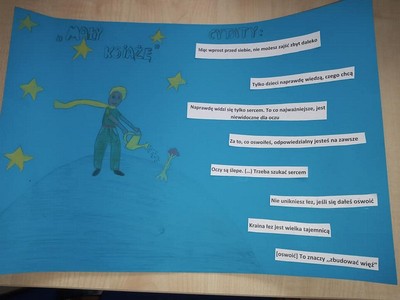 „MAŁY
KSIĄŻĘ"
CYTATY:
Idąc wprost przed siebie, nie możesz zajść zbyt daleko
Tylko dzieci naprawdę wiedzą, czego chcą
Naprawdę widzi się tylko sercem. To co najważniejsze, jest
niewidoczne dla oczu
Za to, co oswoiłeś, odpowiedzialny jesteś na zawsze
Oczy są ślepe. (...) Trzeba szukać sercem
Nie unikniesz łez, jeśli się dałeś oswoić
Kraina łez jest wielką tajemnicą
[oswoić] To znaczy „zbudować więź"